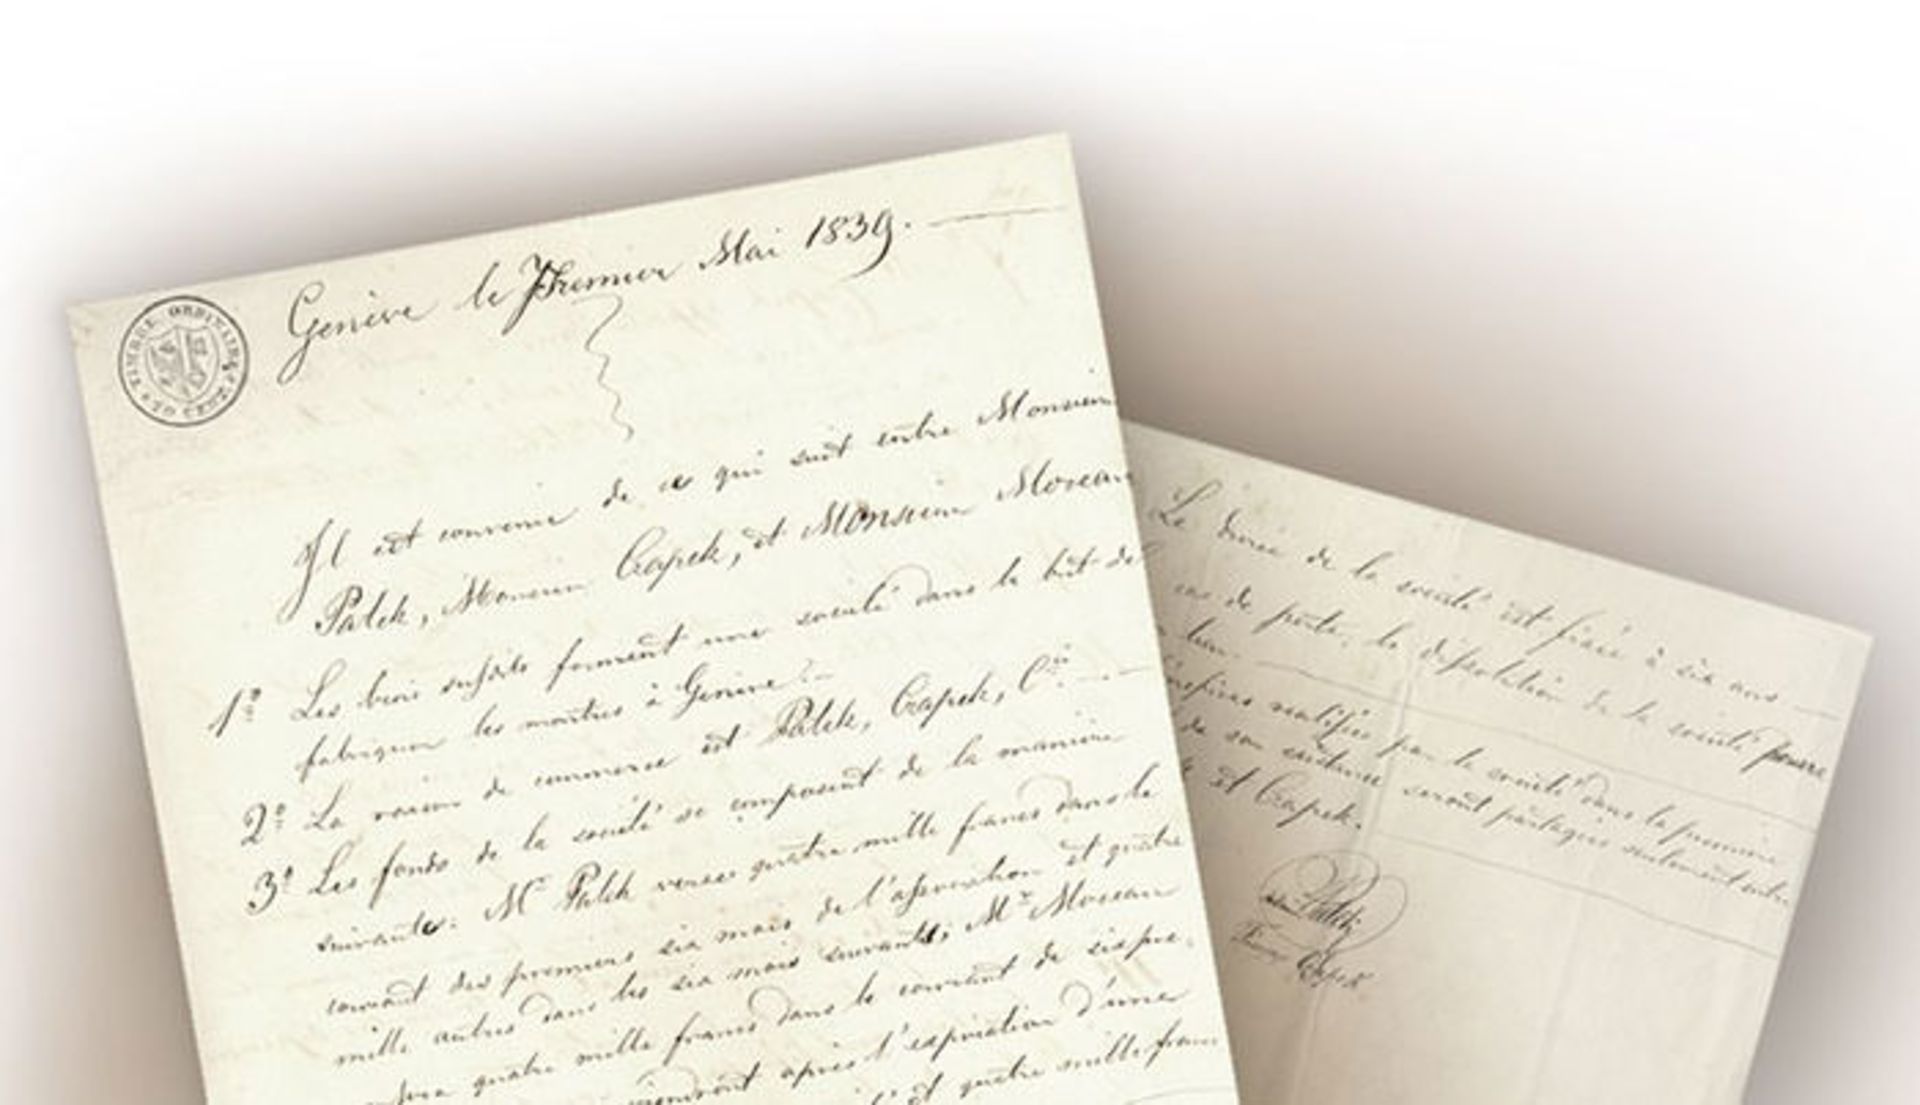 TIMBRE ORDINAIRE
70 CENT.
Genève le Premier Mai 1839.
Il est convenu de ce qui suit entre Monsieur
Patek, Monsieur Czapek, et Monsieur Moreau
1º Les trois susdits forment une société dans le but de
fabriquer les montres à Genève.
2º La raison de commerce est Patek, Czapek, Cie
3º Les fonds de la société se composent de la manière
suivante. Mr Patek verse quatre mille francs dans le
courant des premiers six mois de l'association et quatre
mille autres dans les six mois suivants; Mr Moreau
quatre mille francs dans le courant de six
après l'expiration d'une
et quatre mille francs
La durée de la société est fixée à six ans
cas de perte, la dissolution de la société pourra
lieu.
réalisés par la société dans la première
de son existence seront partagés seulement entre
et Czapek.
Patek
Czapek